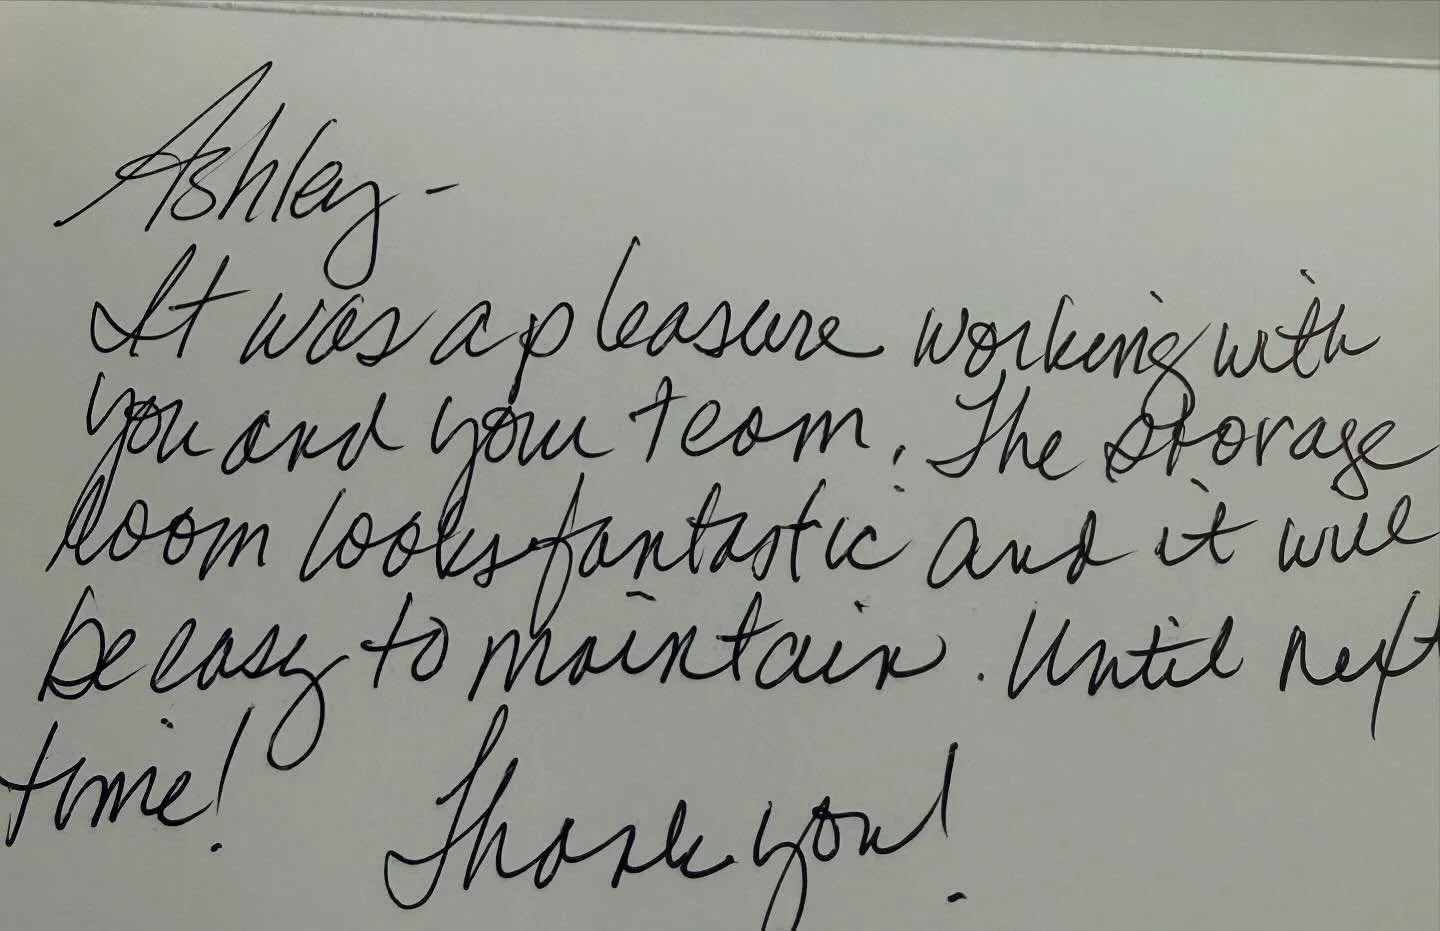 Ashley -
It was a pleasure working with
you and your team. The storage
room looks fantastic and it will
be easy to maintain. Until next
time!
Thank you!